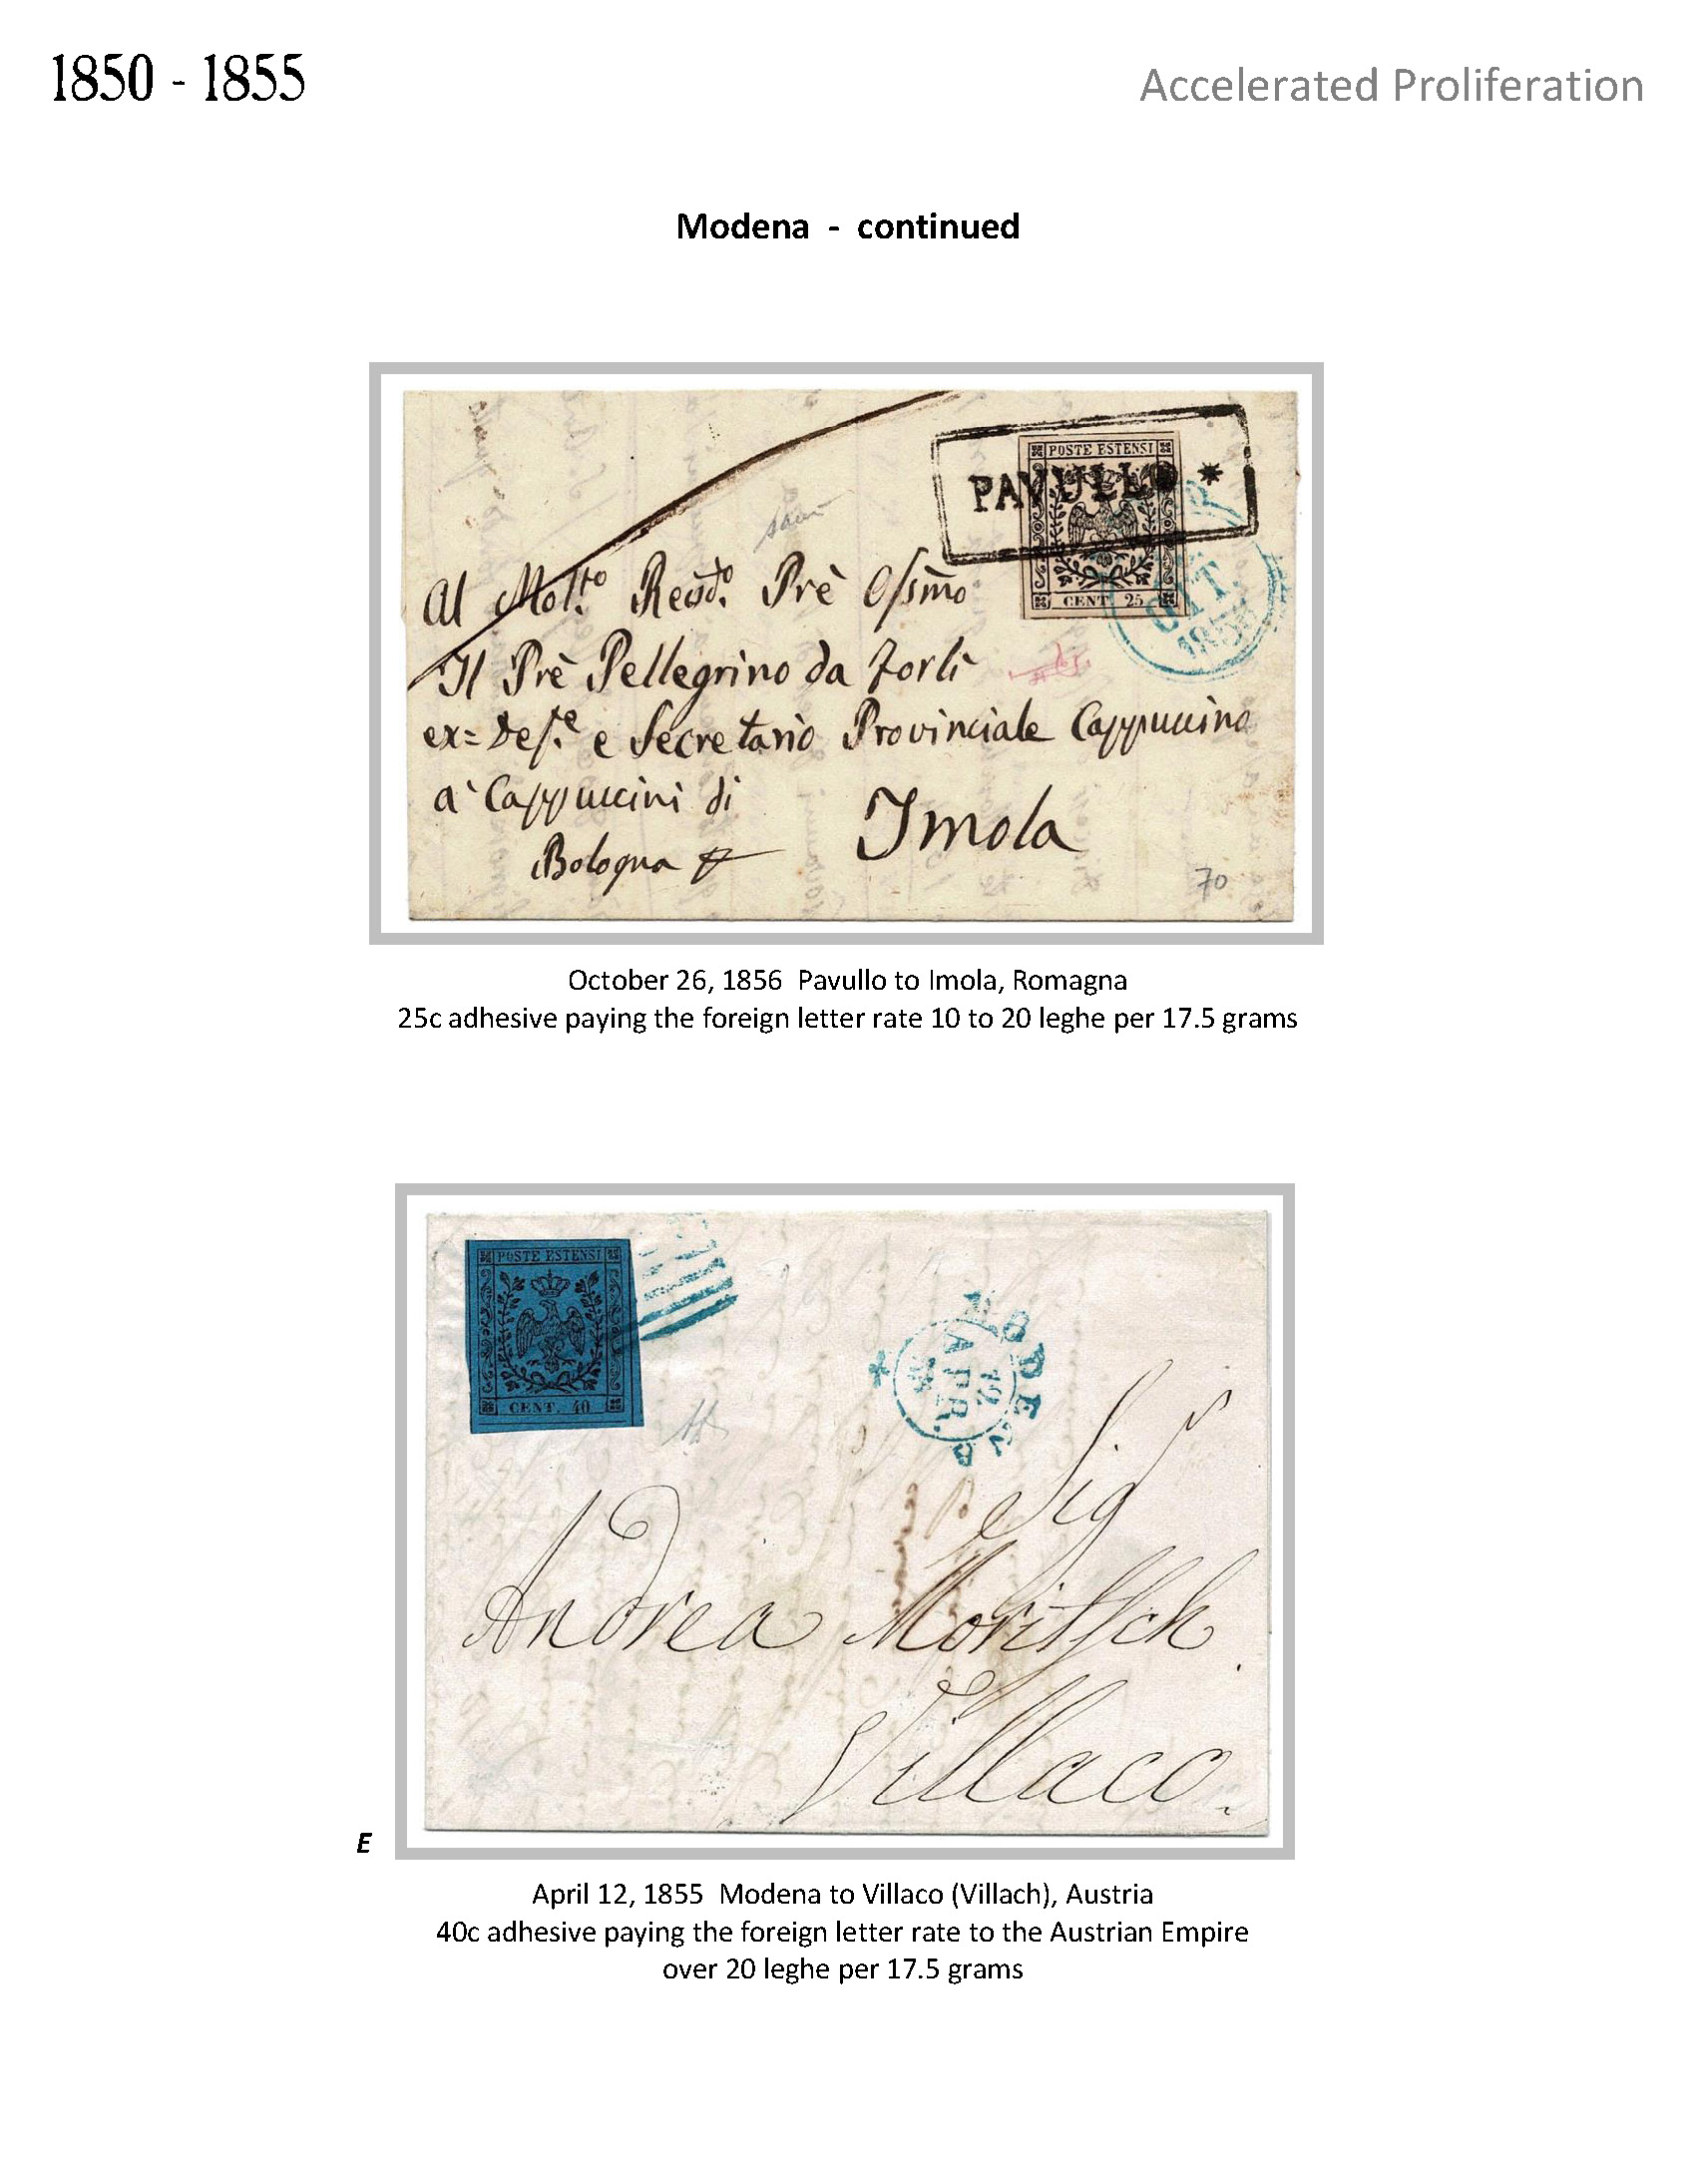 1850 - 1855
Accelerated Proliferation
Modena - continued
PAVULLO *
POSTE ESTENSI
CENT 25
OTT.
Al Molto Revdo. Prè
Il Prè Pellegrino da Forlì
e Secretario Provinciale Cappuccino
a' Cappuccini di
Bologna
Imola
70
October 26, 1856 Pavullo to Imola, Romagna
25c adhesive paying the foreign letter rate 10 to 20 leghe per 17.5 grams
POSTE ESTENSI
CENT. 40
MODENA
12
APR.
Sig
Andrea Moritsch.
Villaco.
E
April 12, 1855 Modena to Villaco (Villach), Austria
40c adhesive paying the foreign letter rate to the Austrian Empire
over 20 leghe per 17.5 grams